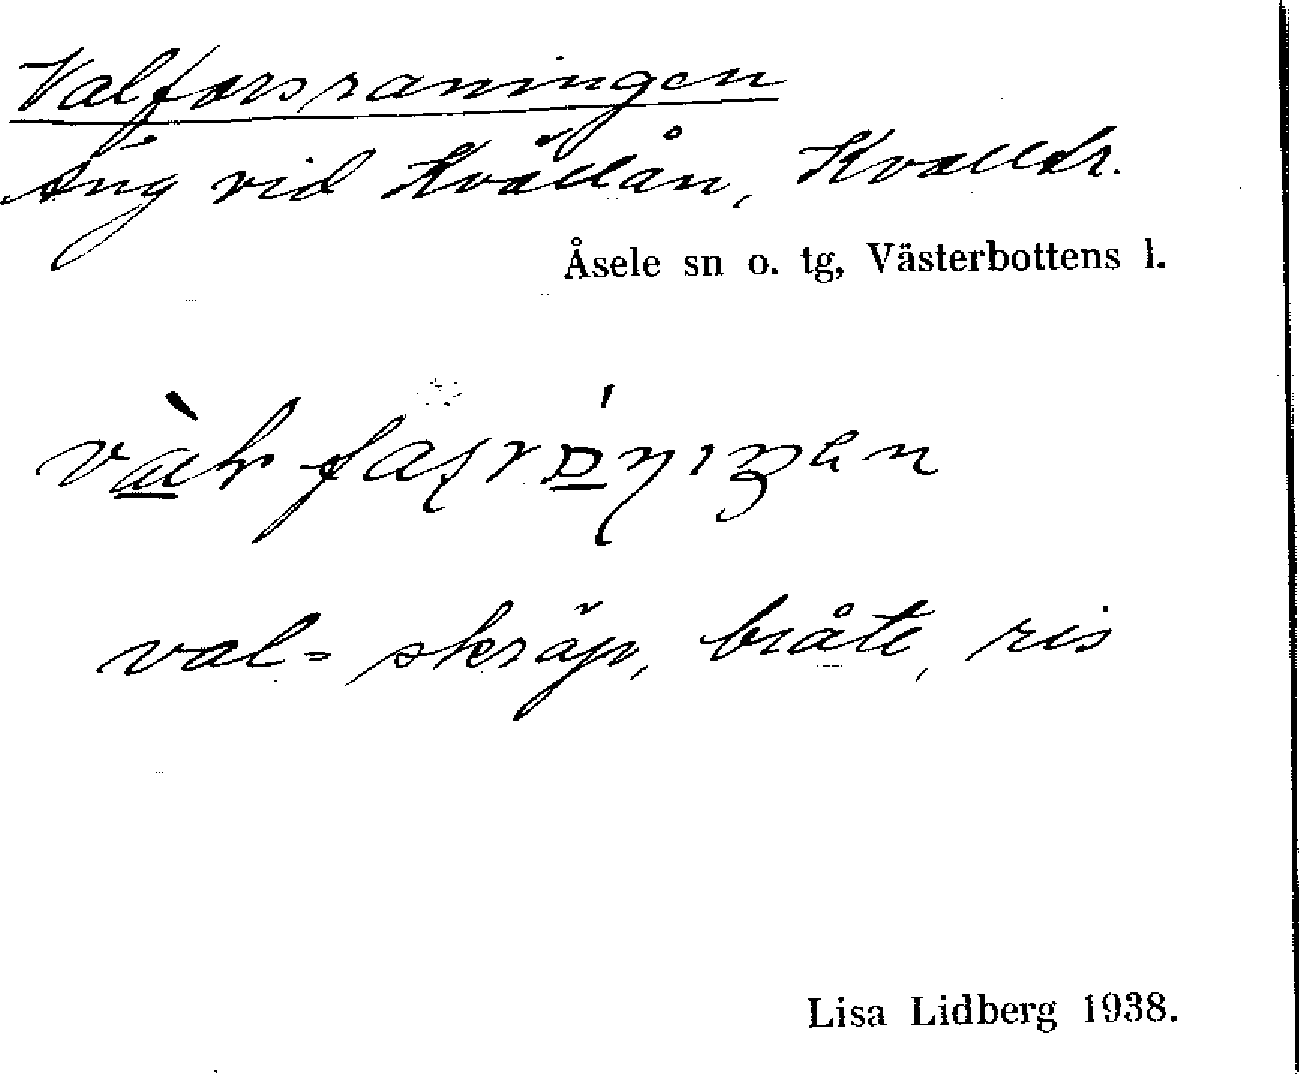 Valforsraningen
Äng vid Kvällån,
Åsele sn o. tg, Västerbottens l.
val = skräp, bråte, ris
Lisa Lidberg 1938.